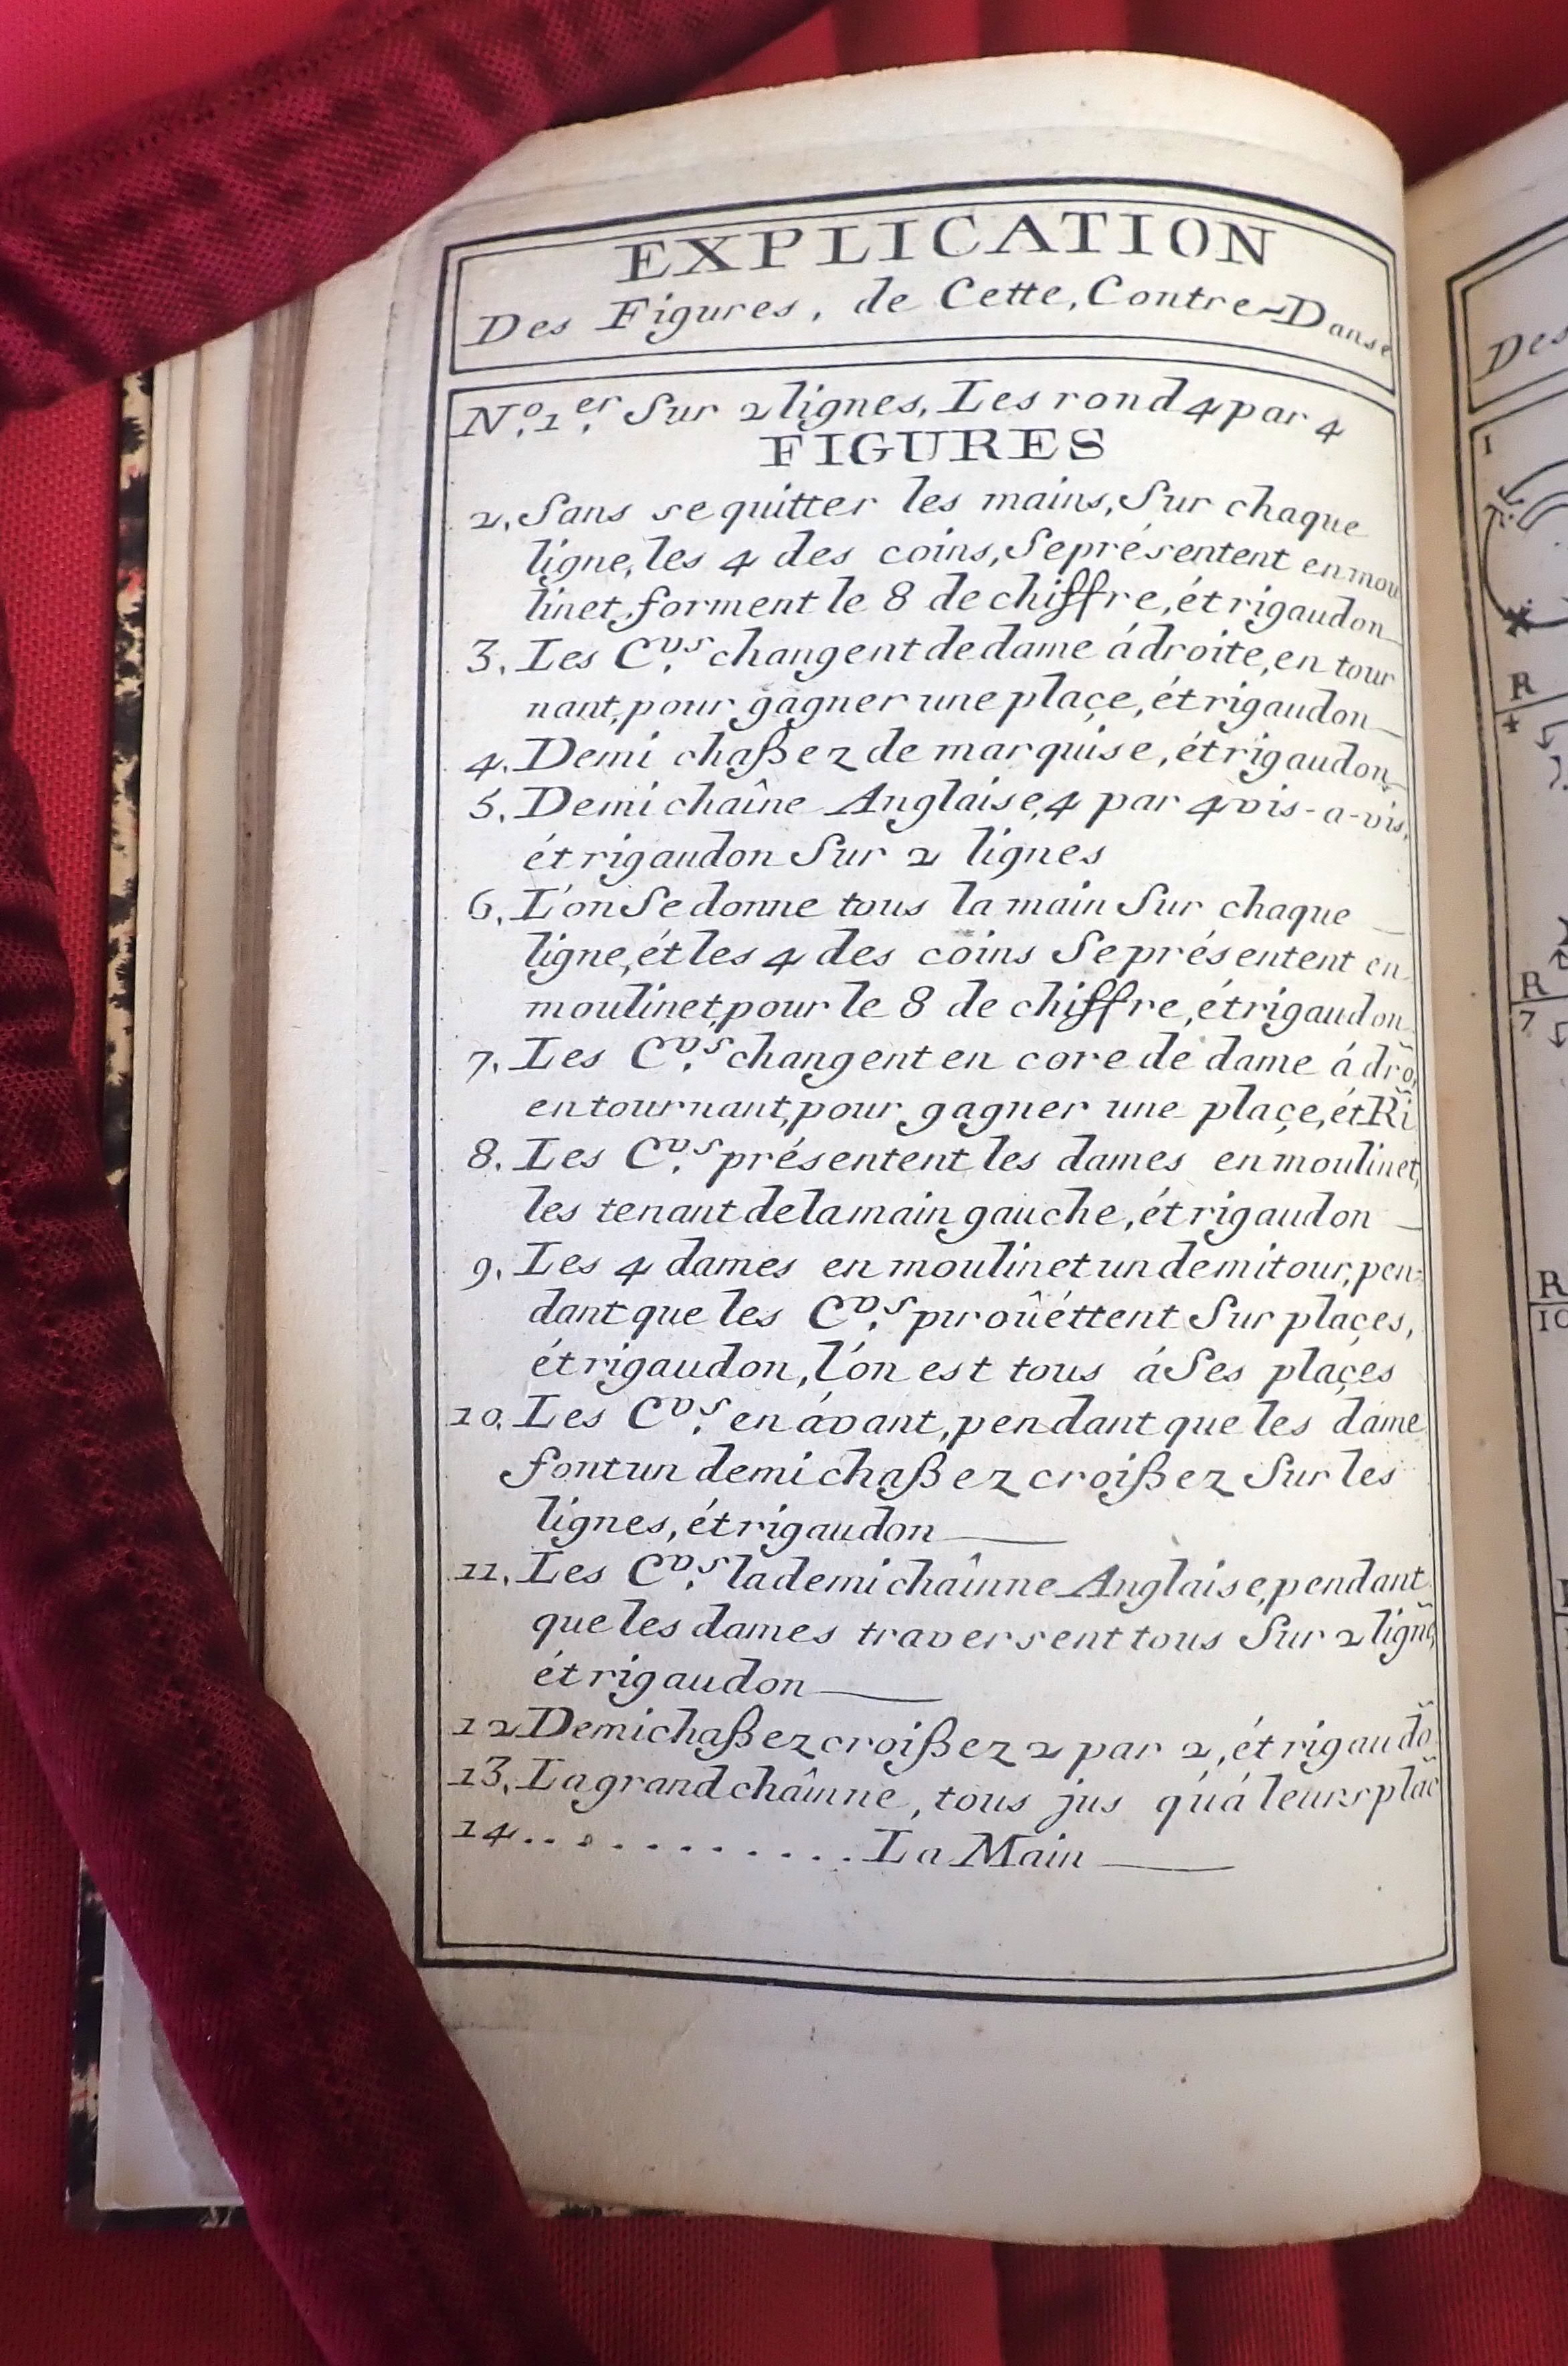 EXPLICATION
Des Figures, de Cette, Contre-Danse
N.º 1.er Sur 2 lignes, Les rond 4 par 4
FIGURES
2. Sans se quitter les mains, Sur chaque
ligne, les 4 des coins, Se présentent en mou
linet, forment le 8 de chiffre, ét rigaudon
3. Les C.vs changent de dame á droite, en tour
nant, pour gagner une plaçe, ét rigaudon
4. Demi chaßez de marquise, ét rigaudon
5. Demi chaîne Anglaise, 4 par 4 vis-a-vis,
ét rigaudon Sur 2 lignes
6. L'on Se donne tous la main Sur chaque
ligne, ét les 4 des coins Se présentent en
moulinet, pour le 8 de chiffre, ét rigaudon
7. Les C.vs changent en core de dame á droi
en tournant, pour gagner une plaçe, ét Ri
8. Les C.vs présentent les dames en moulinet,
les tenant de la main gauche, ét rigaudon
9. Les 4 dames en moulinet un demi tour, pen=
dant que les C.vs piroûéttent Sur plaçes,
ét rigaudon, l'on est tous á Ses plaçes
10. Les C.vs en ávant, pendant que les dame
font un demi chaßez croißez Sur les
lignes, ét rigaudon
11. Les C.vs la demi chaînne Anglaise, pendant
que les dames traversent tous Sur 2 lign
ét rigaudon
12 Demi chaßez croißez 2 par 2, ét rigaudõ
13. La grand chaînne, tous jus qú'á leurs plac
14............ La Main
Des
1
R
4
R
7
R
10